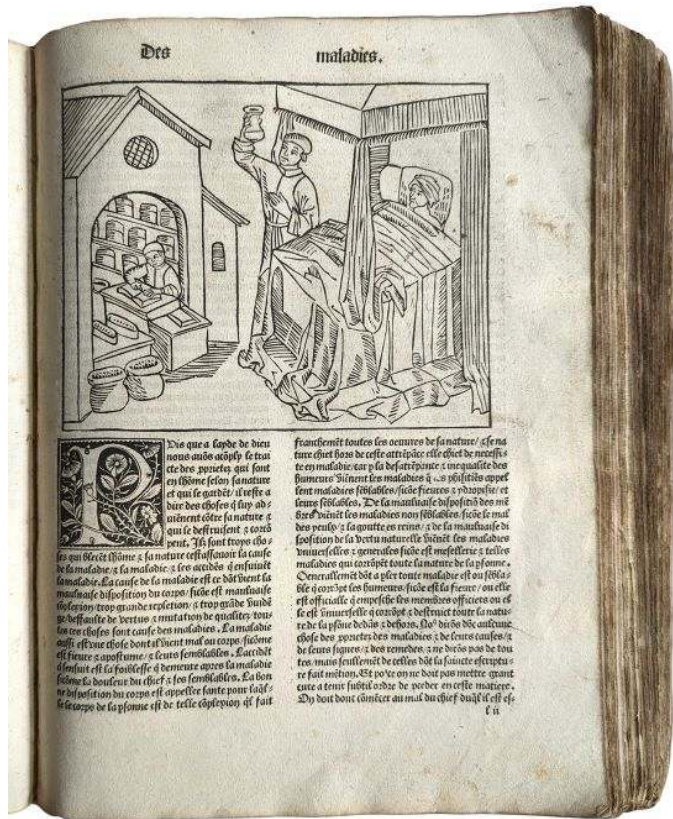 Des maladies.
PVis que a layde de dieu
nous auõs acõply le trai
cte des ꝓprietez qui sont
en lhõme selon sa nature
et qui le gardẽt/ il reste a
dire des choses q̃ luy ad⸗
uiẽnent cõtre sa nature ⁊
qui le destruisent ⁊ corrõ
pent. Jlz sont troys cho⸗
ses qui blecẽt lhõme ⁊ sa nature cestassauoir la cause
de la maladie/⁊ la maladie/⁊ les accidẽs q̃ ensuiuẽt
la maladie. La cause de la maladie est ce dõt viẽnt la
mauluaise disposition du corps/sicõe est mauluaise
cõplexion/trop grande repletion/⁊ trop grãde vuidẽ
ge/deffaulte de vertus ⁊ mutation de qualitez/tou⸗
tes ces choses sont cause des maladies. La maladie
aussi est vne chose dont il viẽt mal ou corps/sicõme
est fieure ⁊ apostume/⁊ leurs semblables. Laccidẽt
q̃ sensuit est la foiblesse q̃ demeure apres la maladie
sicõme la douleur du chief ⁊ ses semblables. La bon
ne disposition du corps est appellee sante pour laq̃l⸗
le le corps de la ꝑsonne est de telle cõplexion q̃l fait
franchemẽt toutes les oeuures de sa nature/⁊ se na
ture chiet hors de ceste attrẽpãce elle chiet de necessi⸗
te en maladie/car ꝑ la desatrẽpance ⁊ inequalite des
humeurs viẽnent les maladies q̃ les phisiciẽs appel
lent maladies sẽblables/sicõe fieures ⁊ ydropisie/et
leurs sẽblables. De la mauluaise dispositiõ des mẽ
bres viẽnẽt les maladies non sẽblables/sicõe le mal
des yeulx/⁊ la goutte es reins/⁊ de la mauluaise di
sposition de la vertu naturelle viẽnẽt les maladies
vniuerselles ⁊ generales sicõe est mesellerie ⁊ telles
maladies qui corrõpẽt toute la nature de la ꝑsonne.
Generallemẽt dõt a ꝑler toute maladie est ou sẽbla⸗
ble q̃ corrõpt les humeurs/sicõe est la fieure/ ou elle
est officialle q̃ empesche les membres officiers ou el
le est vniuerselle q̃ corrõpt ⁊ destruict toute la natu⸗
re de la ꝑsõne dedãs ⁊ dehors. No⁹ dirõs dõc aulcune
chose des ꝓprietez des maladies ⁊ de leurs causes/⁊
de leurs signes/⁊ des remedes/⁊ ne dirõs pas de tou
tes/mais seullemẽt de telles dõt la saincte escriptu⸗
re fait mẽtion. Et po²ce on ne doit pas mettre grant
cure a tenir subtil ordre de ꝓceder en ceste matiere.
On doit dont cõmẽcer au mal du chief duq̃l il est es⸗
l ii